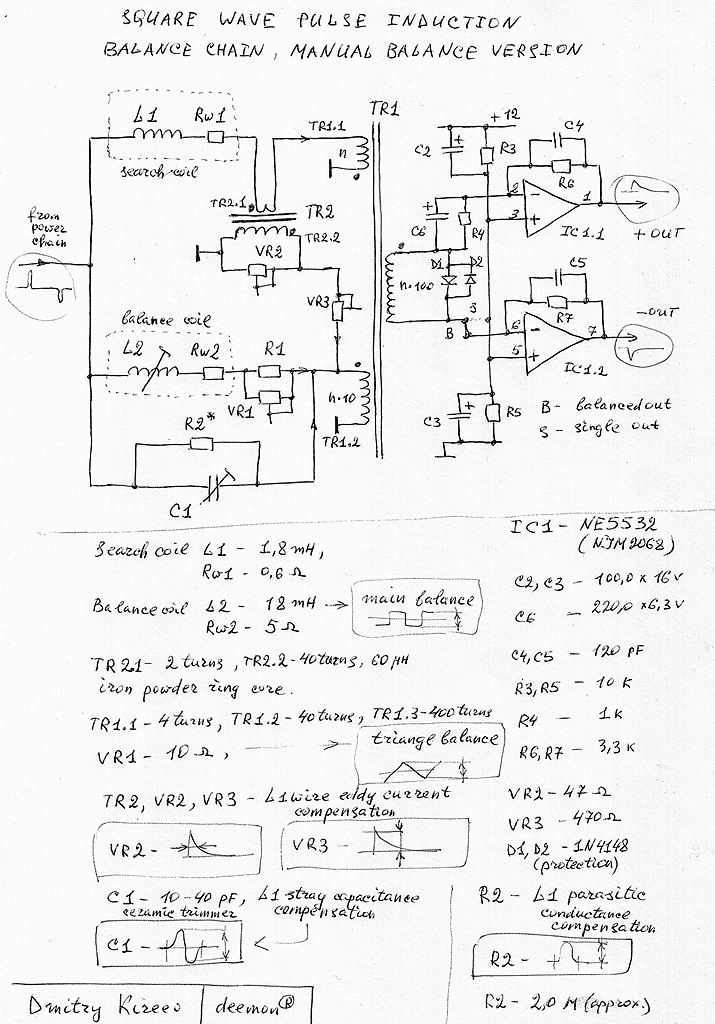 SQUARE WAVE PULSE INDUCTION
BALANCE CHAIN, MANUAL BALANCE VERSION
L1 Rw1
search coil
from
power
chain
TR2.1
TR2
TR2.2
VR2
VR3
TR1.1
n
TR1
balance coil
L2 Rw2 R1
VR1
R2*
C1
n·10
TR1.2
+12
C2 R3
C4
R6
2
3
1
IC1.1
+OUT
C6 R4
n·100
D1 D2
S
B
C5
R7
6
5
7
IC1.2
-OUT
C3 R5
B - balanced out
S - single out
Search coil L1 - 1,8 mH,
Rw1 - 0,6 Ω
Balance coil L2 - 18 mH
Rw2 - 5 Ω
main balance
TR2.1 - 2 turns, TR2.2 - 40 turns, 60 μH
iron powder ring core.
TR1.1 - 4 turns, TR1.2 - 40 turns, TR1.3 - 400 turns
VR1 - 10 Ω,
triange balance
TR2, VR2, VR3 - L1 wire eddy current
compensation
VR2 -
VR3 -
C1 - 10-40 pF, L1 stray capacitance
ceramic trimmer compensation
C1 -
IC1 - NE5532
(NJM2068)
C2, C3 - 100,0 x 16 v
C6 - 220,0 x 6,3 v
C4, C5 - 120 pF
R3, R5 - 10 K
R4 - 1 K
R6, R7 - 3,3 K
VR2 - 47 Ω
VR3 - 470 Ω
D1, D2 - 1N4148
(protection)
R2 - L1 parasitic
conductance
compensation
R2 -
R2 - 2,0 M (approx.)
Dmitry Kireev deemon®